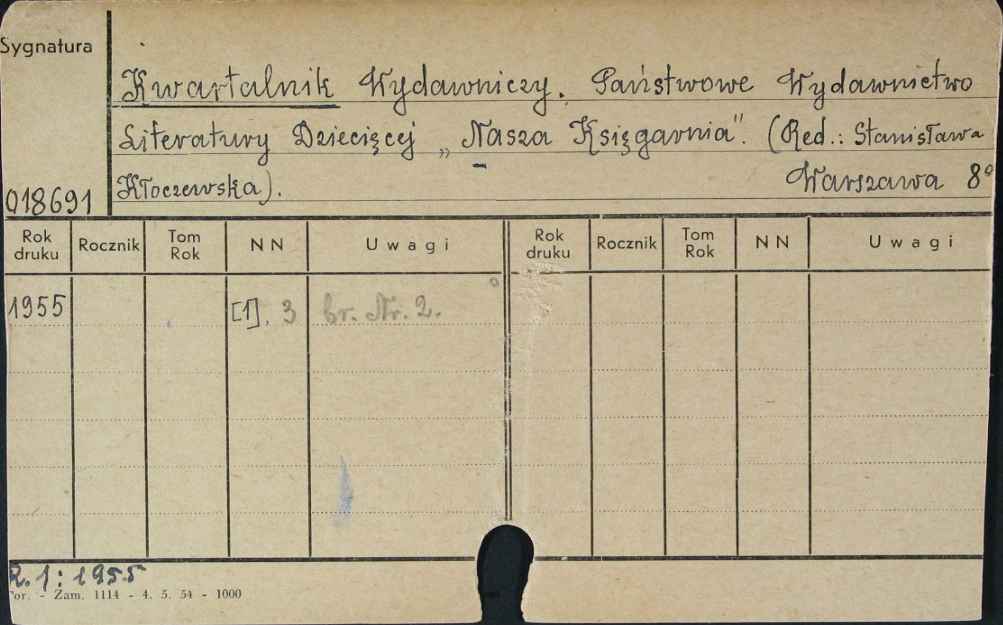 Sygnatura
Kwartalnik Wydawniczy. Państwowe Wydawnictwo
Literatury Dziecięcej „Nasza Księgarnia". (Red.: Stanisława
Kłoczewska). Warszawa 8°
018691
Rok druku Rocznik Tom Rok NN Uwagi Rok druku Rocznik Tom Rok NN Uwagi
1955 [1], 3 br. Nr. 2.
R. 1: 1955
Zam. 1114 - 4. 5. 54 - 1000